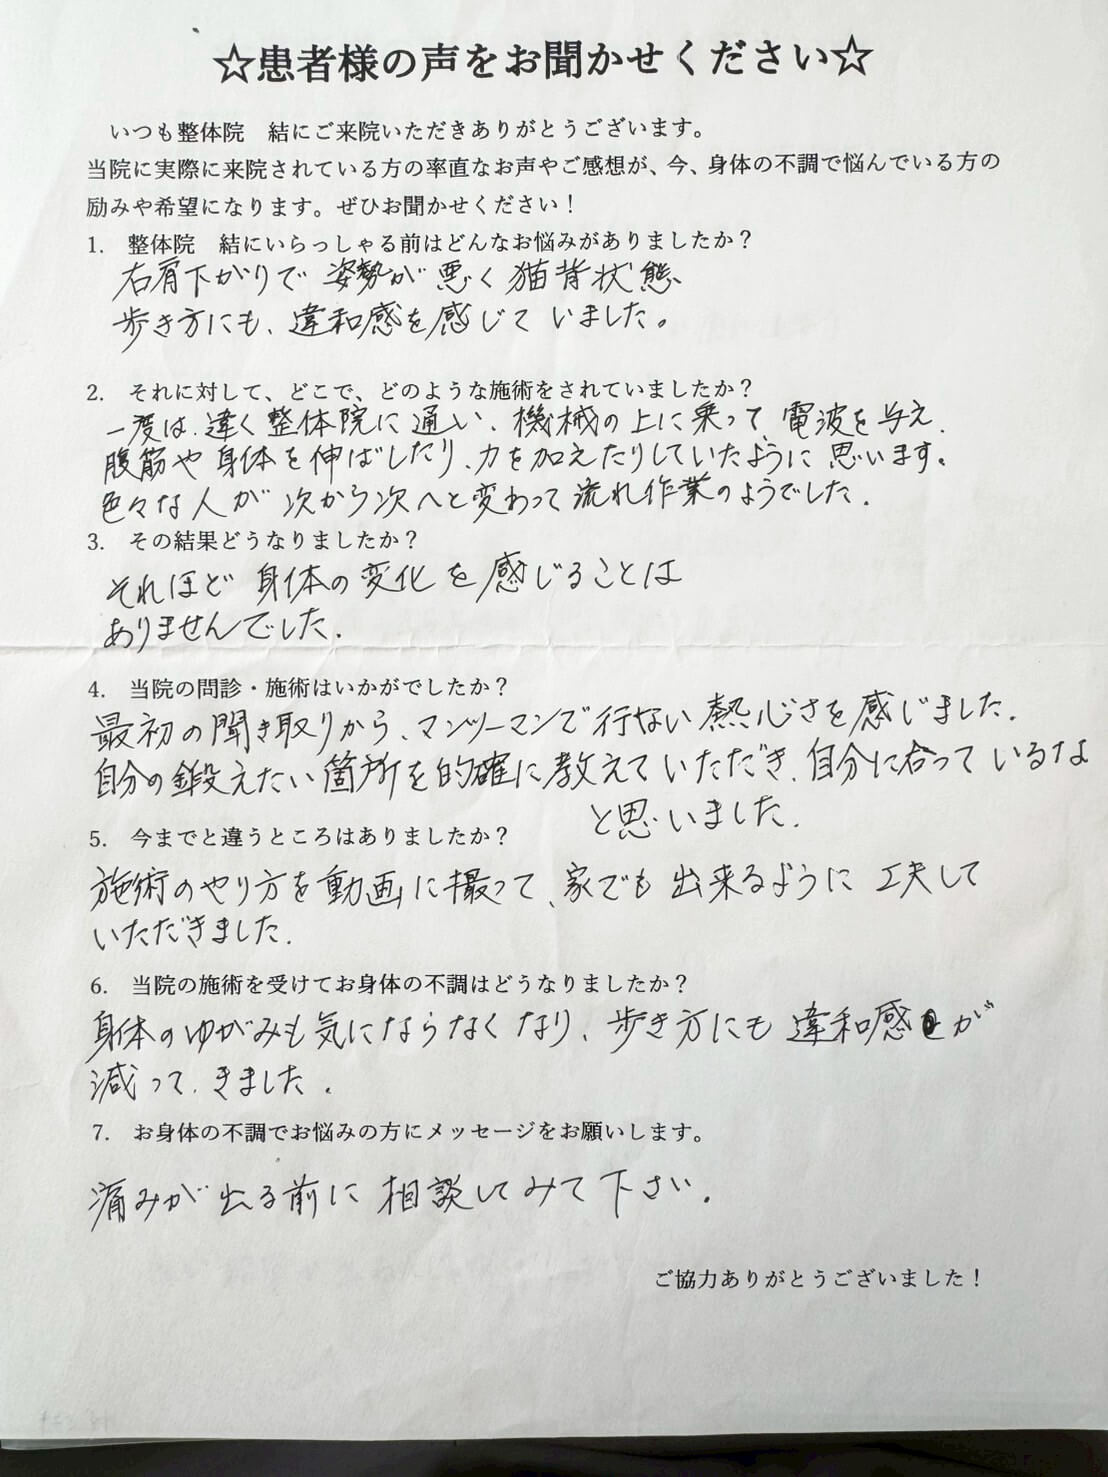 ☆患者様の声をお聞かせください☆
いつも整体院　結にご来院いただきありがとうございます。
当院に実際に来院されている方の率直なお声やご感想が、今、身体の不調で悩んでいる方の
励みや希望になります。ぜひお聞かせください！
1.　整体院　結にいらっしゃる前はどんなお悩みがありましたか？
右肩下がりで 姿勢が 悪く 猫背状態、
歩き方にも、違和感を感じて いました。
2.　それに対して、どこで、どのような施術をされていましたか？
一度は、違く整体院に通い、機械の上に乗って、電波を与え、
腹筋や身体を伸ばしたり、力を加えたりしていたように思います。
色々な人が 次から次へと変わって 流れ作業のようでした。
3.　その結果どうなりましたか？
それほど 身体の変化を感じることは
ありませんでした。
4.　当院の問診・施術はいかがでしたか？
最初の聞き取りから、マンツーマンで行ない熱心さを感じました。
自分の鍛えたい箇所を的確に教えていただき、自分に合っているな
と思いました。
5.　今までと違うところはありましたか？
施術のやり方を動画に撮って、家でも出来るように工夫して
いただきました。
6.　当院の施術を受けてお身体の不調はどうなりましたか？
身体のゆがみも気にならなくなり、歩き方にも違和感が
減って、きました。
7.　お身体の不調でお悩みの方にメッセージをお願いします。
痛みが出る前に相談してみて下さい。
ご協力ありがとうございました！